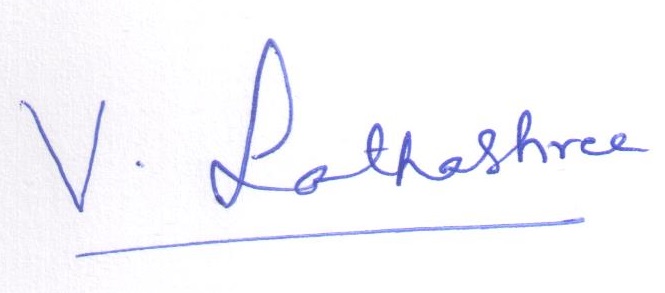 V. Lathashree